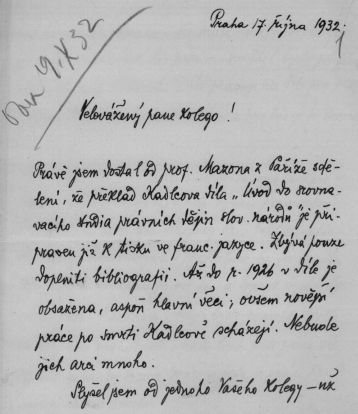 Praha 17. října 1932.
9.X 32
Velevážený pane kolego!
Právě jsem dostal od prof. Mazona z Paříže sdě-
lení, že překlad Kadlcova díla „Úvod do srovna-
vacího studia právních dějin slov. národů" je při-
praven již k tisku ve franc. jazyce. Zbývá pouze
doplniti bibliografii. Až do r. 1926 v díle je
obsažena, aspoň hlavní věci; ovšem novější
práce po smrti Kadlcově scházejí. Nebude
jich arci mnoho.
Slyšel jsem od jednoho Vašeho kolegy – už